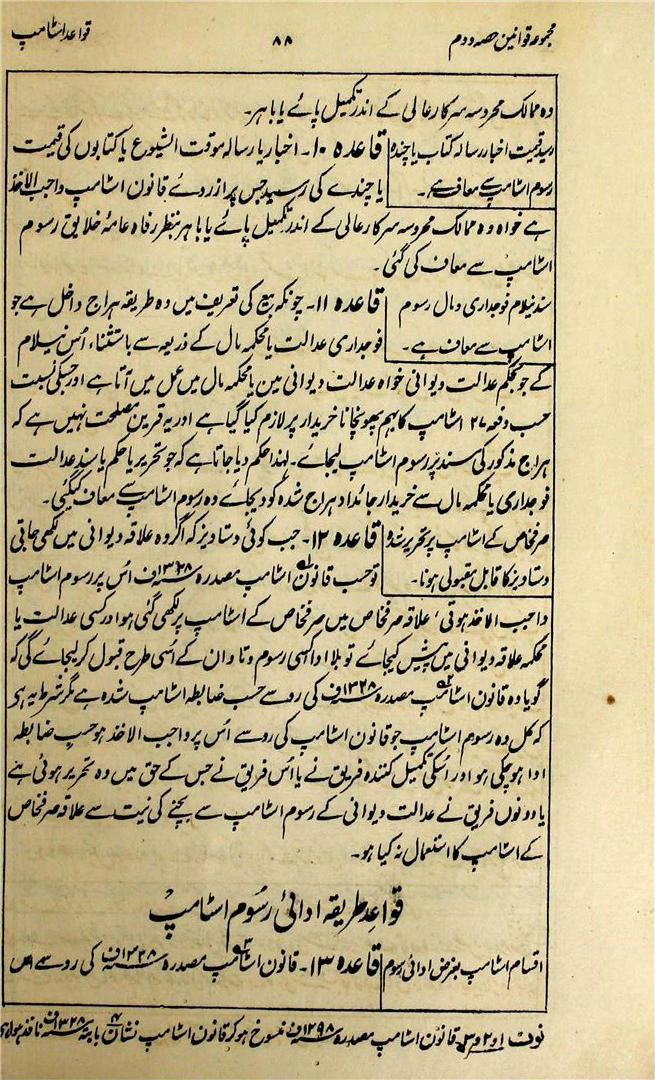 مجموعہ قوانین حصہ دوم ۸۸ قواعد اسٹامپ
وہ ممالک محروسہ سرکار عالی کے اندر تکمیل پائے یا باہر۔
رسید قیمت اخبار رسالہ کتاب یا چندہ قاعدہ ۱۰۔ اخبار یا رسالہ موقت الشیوع یا کتابوں کی قیمت
رسوم اسٹامپ سے معاف ہے۔ یا چندے کی رسید جس پر از روے قانون اسٹامپ واجب الاخذ
ہے خواہ وہ ممالک محروسہ سرکار عالی کے اندر تکمیل پائے یا باہر بنظر رفاہ عامۂ خلایق رسوم
اسٹامپ سے معاف کی گئی۔
سند نیلام فوجداری و مال رسوم قاعدہ ۱۱۔ چونکہ بیع کی تعریف میں وہ طریقہ ہراج داخل ہے جو
اسٹامپ سے معاف ہے۔ فوجداری عدالت یا محکمہ مال کے ذریعہ سے باستثناء اُس نیلام
کے جو بحکم عدالت دیوانی خواہ عدالت دیوانی مین یا محکمہ مال میں عمل میں آتا ہے اور جسکی نسبت
حسب دفعہ ۲۷ اسٹامپ کا بہم پھونچانا خریدار پر لازم کیا گیا ہے اور یہ قرین مصلحت نہیں ہے کہ
ہراج مذکور کی سند پر رسوم اسٹامپ لیجائے۔ لہذا حکم دیا جاتا ہے کہ جو تحریر یا حکم یا سند عدالت
فوجداری یا محکمہ مال سے خریدار جائداد ہراج شدہ کو دیجائے وہ رسوم اسٹامپ سے معاف کیگئی۔
صرفخاص کے اسٹامپ پر تحریر شدہ قاعدہ ۱۲۔ جب کوئی دستاویز کہ اگر وہ علاقہ دیوانی میں لکھی جاتی
دستاویز کا قابل مقبولی ہونا۔ تو حسب قانون اسٹامپ مصدرہ ۱۳۲۸ سنہ ف اُس پر رسوم اسٹامپ
واجب الاخذ ہوتی، علاقہ صرفخاص میں صرفخاص کے اسٹامپ پر لکھی گئی ہو اور کسی عدالت یا
محکمہ علاقہ دیوانی میں پیش کیجائے تو بلا ادا کسی رسوم و تاوان کے اُسی طرح قبول کر لیجائے گی کہ
گویا وہ قانون اسٹامپ مصدرہ ۱۳۲۸ سنہ ف کی رو سے حسب ضابطہ اسٹامپ شدہ ہے مگر شرط یہ ہی
کہ کل وہ رسوم اسٹامپ جو قانون اسٹامپ کی رو سے اُس پر واجب الاخذ ہو حسب ضابطہ
ادا ہو چکی ہو اور اُسکی تکمیل کنندہ فریق نے یا اُس فریق نے جس کے حق میں وہ تحریر ہوئی ہے
یا دونوں فریق نے عدالت دیوانی کے رسوم اسٹامپ سے بچنے کی نیت سے علاقہ صرفخاص
کے اسٹامپ کا استعمال نہ کیا ہو۔
قواعد طریقہ ادائی رسوم اسٹامپ
اقسام اسٹامپ بغرض ادائی رسوم قاعدہ ۱۳۔ قانون اسٹامپ مصدرہ ۱۳۲۸ سنہ ف کی رو سے اس
نوٹ ۱ و ۲ و ۳۔ قانون اسٹامپ مصدرہ ۱۲۹۸ سنہ ف منسوخ ہو کر قانون اسٹامپ نشان ۴ بابتہ ۱۳۲۸ سنہ ف نافذ ہوا ہے